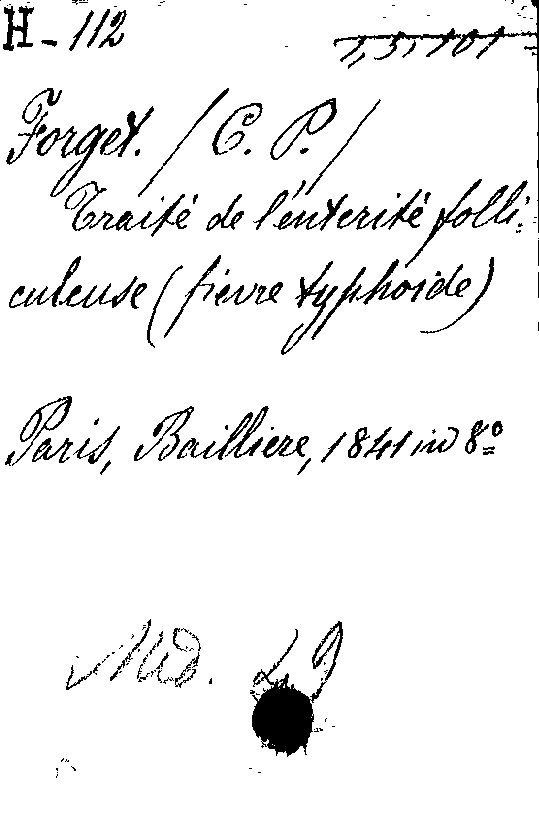 H-112 1,5,101
Forget. / C. P. /
Traité de l'énterité folli-
culeuse ( fievre typhoide)
Paris, Bailliere, 1841 in 8º
Méd. 29